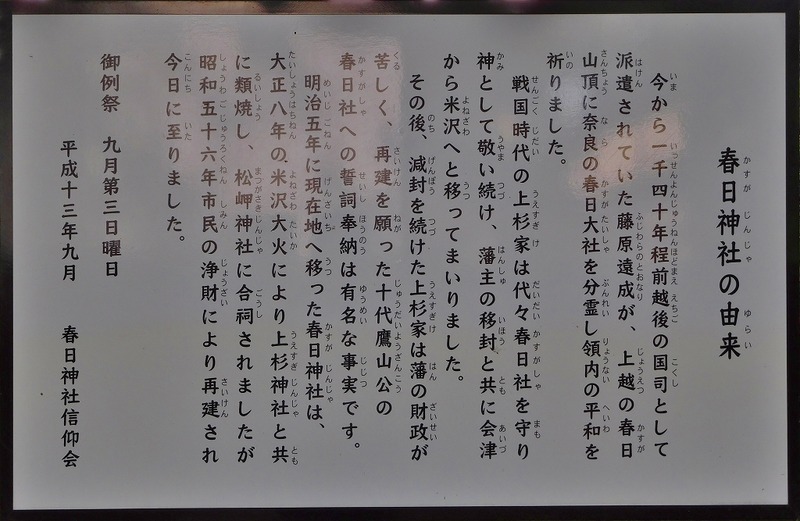 春日神社の由来
今から一千四十年程前越後の国司として
派遣されていた藤原遠成が、上越の春日
山頂に奈良の春日大社を分霊し領内の平和を
祈りました。
戦国時代の上杉家は代々春日社を守り
神として敬い続け、藩主の移封と共に会津
から米沢へと移ってまいりました。
その後、減封を続けた上杉家は藩の財政が
苦しく、再建を願った十代鷹山公の
春日社への誓詞奉納は有名な事実です。
明治五年に現在地へ移った春日神社は、
大正八年の米沢大火により上杉神社と共
に類焼し、松岬神社に合祠されましたが
昭和五十六年市民の浄財により再建され
今日に至りました。
御例祭 九月第三日曜日
平成十三年九月 春日神社信仰会